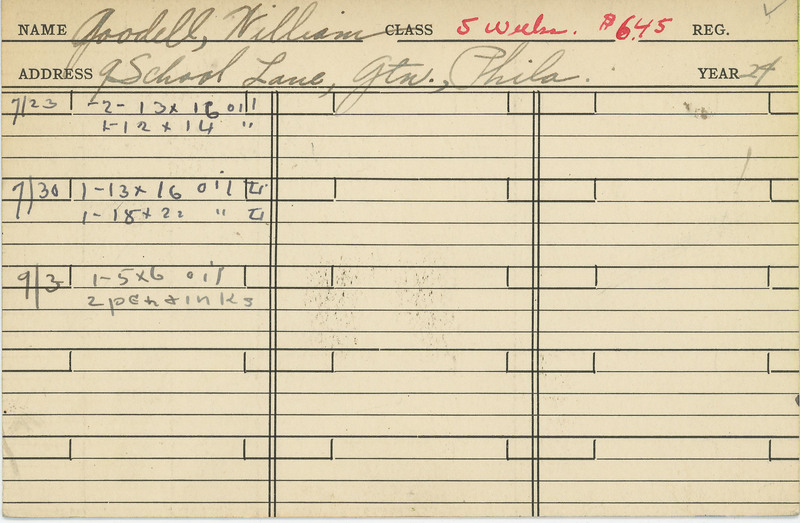 NAME Goodell, William CLASS 5 Weeks. $6.45 REG.
ADDRESS 9 School Lane, Gtn., Phila. YEAR 24
7/23 -2-13x16 oil
1-12x14 "
7/30 1-13x16 oil
1-18x22 "
9/3 1-5x6 oil
2 pen & inks